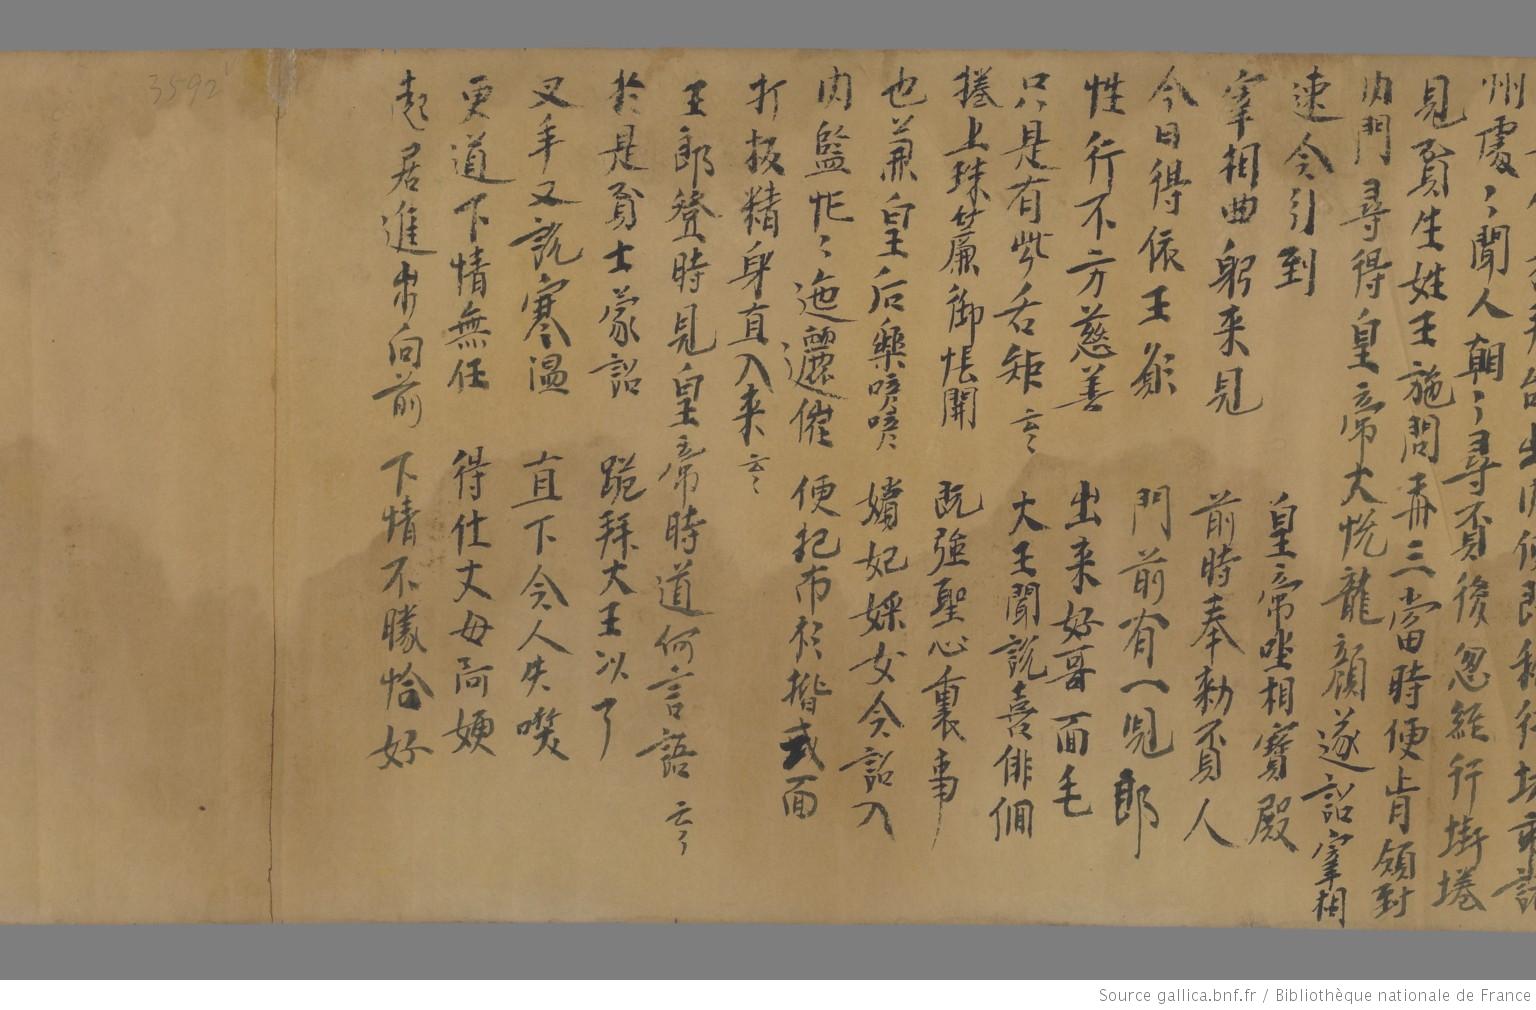 州處〻聞人朝〻尋覓後忽經行街捲
見貧生姓王施問再三當時便肯領對
内門尋得皇帝大悦龍顔遂詔宰相
速令引到　皇帝唑相寶殿
宰相曲躬来見　前時奉勑覓人
今日得依王願　門前有一児郎
性行不方慈善　出来好哥面毛
只是有些舌短云〻　大王聞説喜俳佪
捲上珠簾御帳開　既強聖心裏事
也兼皇后樂咲咲　嬪妃婇女令詔入
内監忙〻迤邐催　便把布衫揩式面
打扳精身直入来云〻
王郎登時見皇帝時道何言語云〻
於是貧士蒙詔　跪拜大王以了
叉手又説寒温　直下令人失噗
更道下情無任　得仕丈母阿嫂
彪居進步向前　下情不勝恰好
3592
Source gallica.bnf.fr / Bibliothèque nationale de France